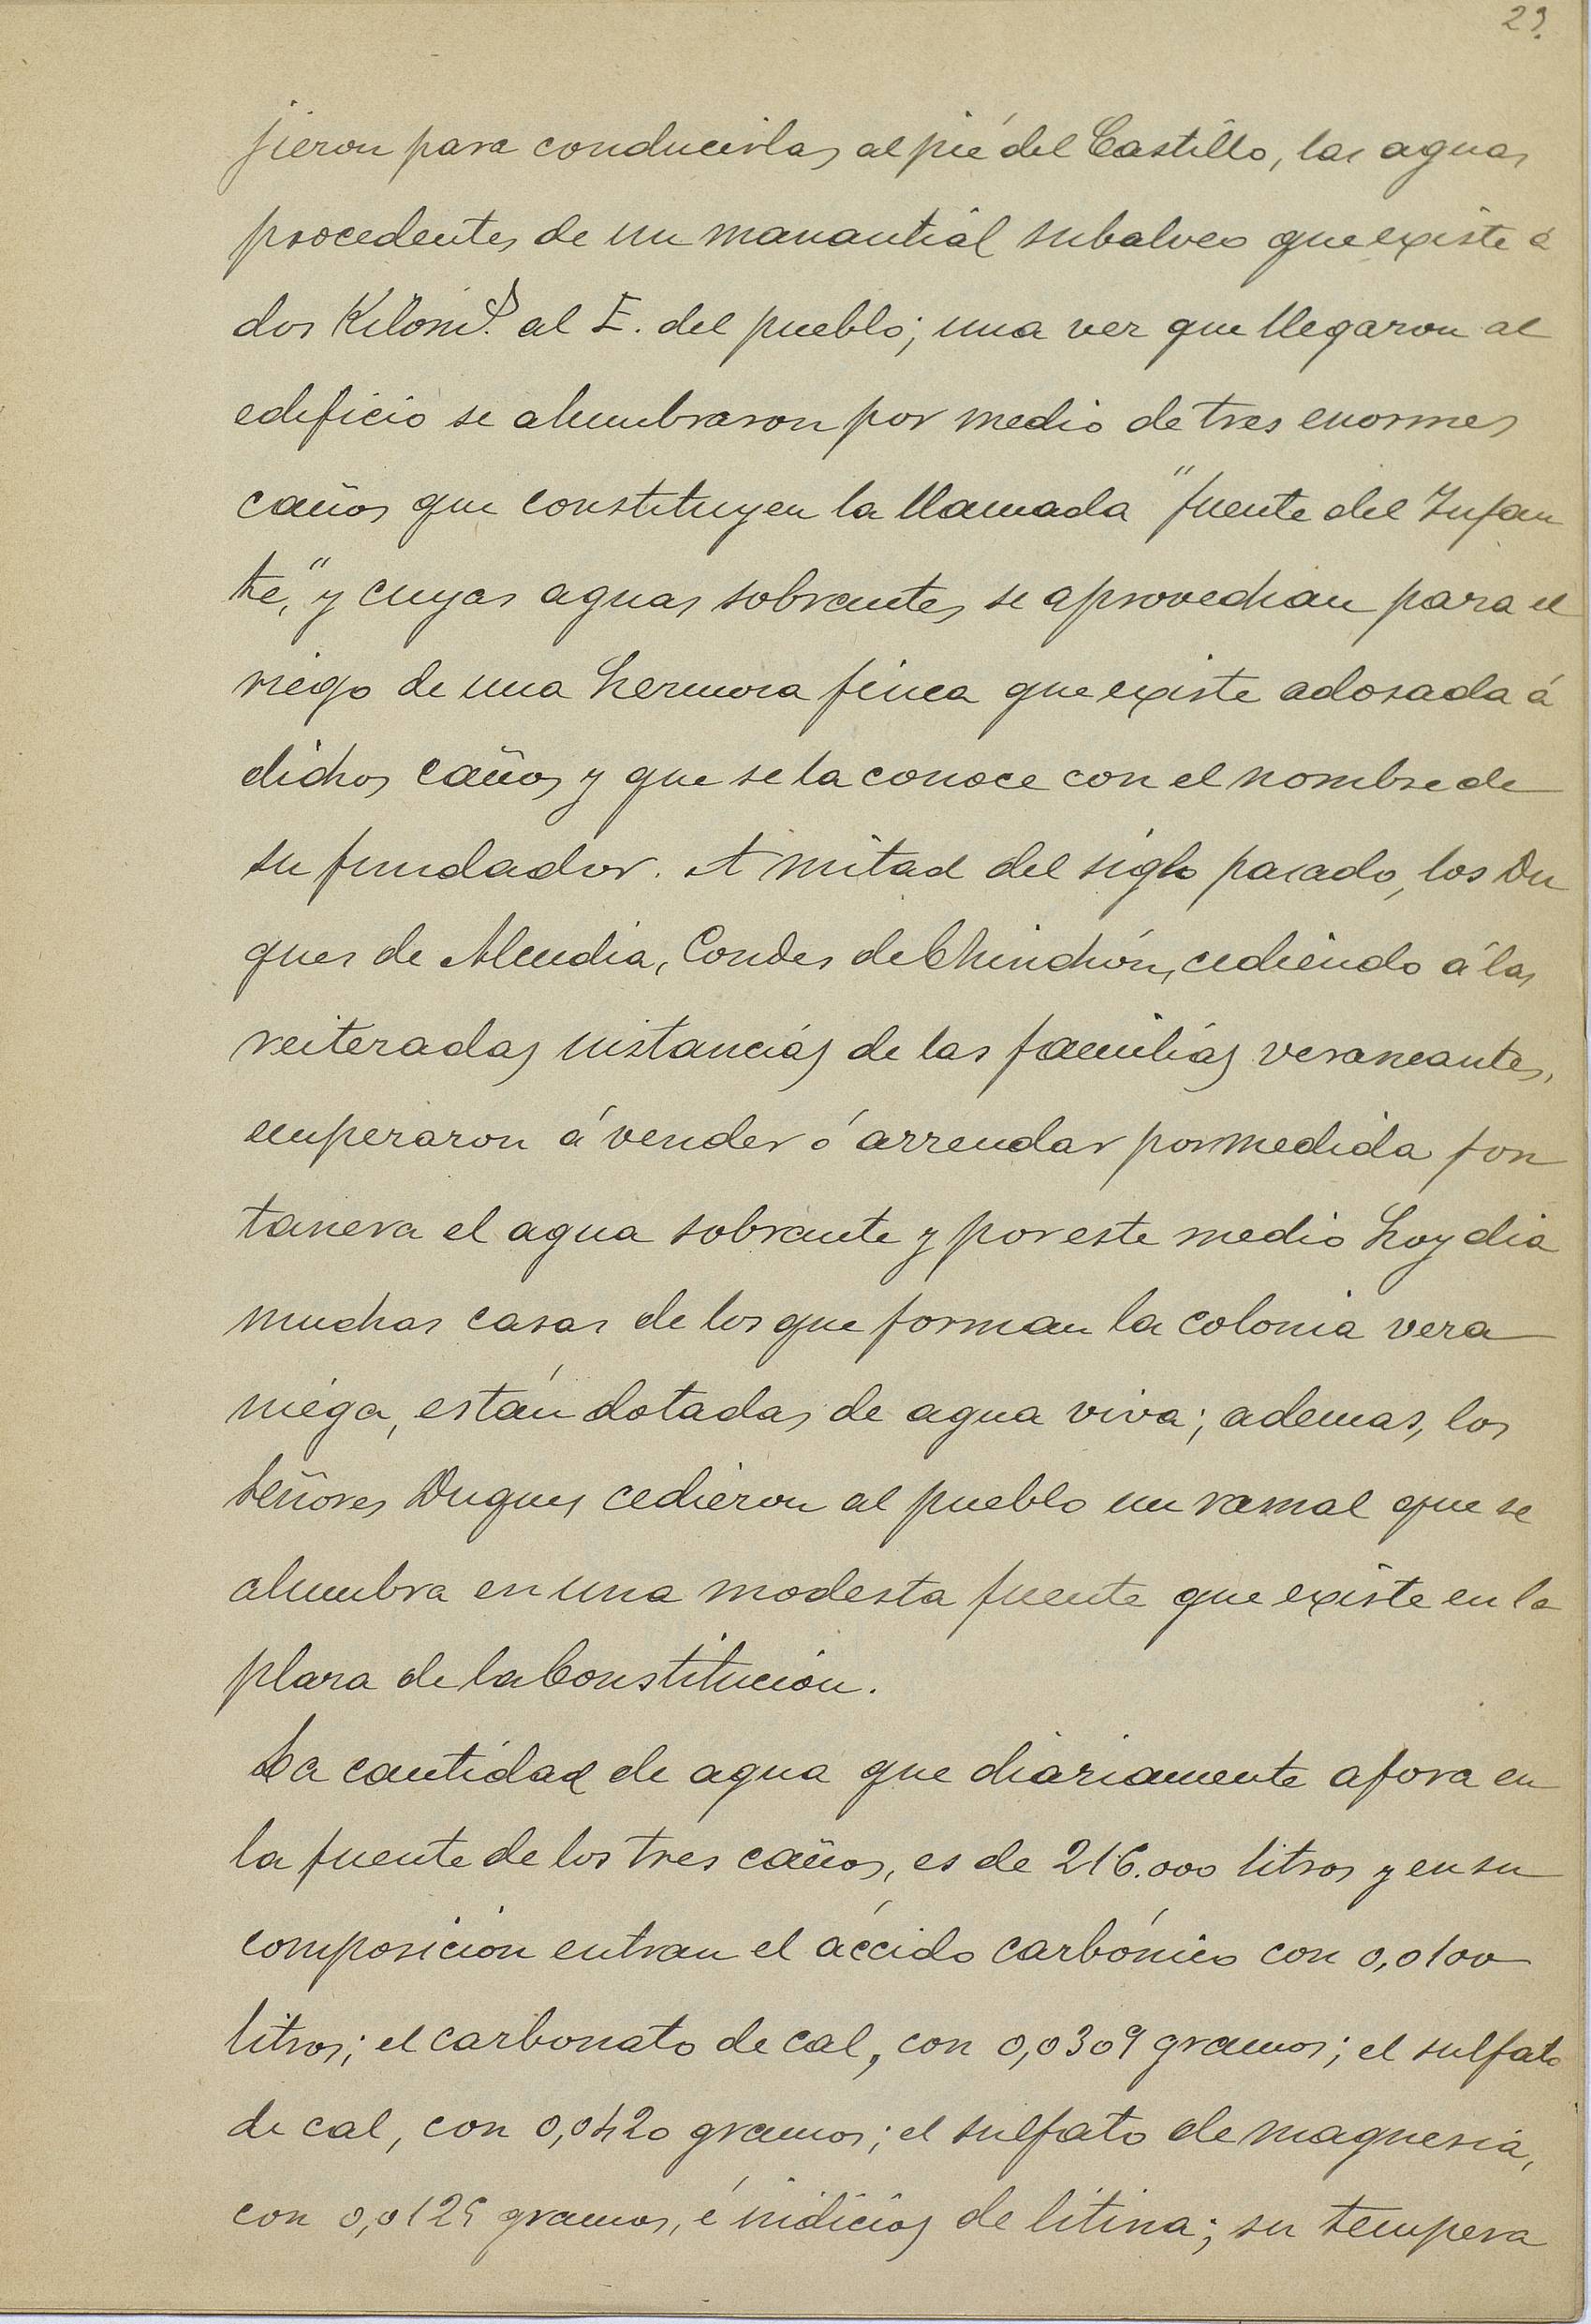 29.
jieron para conducirlas al pié del Castillo, las aguas
procedentes de un manantial subalveo que existe á
dos Kilomº.s al E. del pueblo; una vez que llegaron al
edificio se alumbraron por medio de tres enormes
caños que constituyen la llamada "fuente del Infan
te," y cuyas aguas sobrantes se aprovechan para el
riego de una hermosa finca que existe adosada á
dichos caños y que se la conoce con el nombre de
su fundador. A mitad del siglo pasado, los Du
ques de Alcudia, Condes de Chinchón, cediendo á las
reiteradas instancias de las familias veraneantes,
empezaron á vender ó arrendar por medida fon
tanera el agua sobrante y por este medio hoy dia
muchas casas de los que forman la colonia vera
niega, están dotadas de agua viva; ademas, los
Señores Duques cedieron al pueblo un ramal que se
alumbra en una modesta fuente que existe en la
plaza de la Constitución.
La cantidad de agua que diariamente afora en
la fuente de los tres caños, es de 216.000 litros y en su
composición entran el áccido carbónico con 0,0100
litros; el carbonato de cal, con 0,0309 gramos; el sulfato
de cal, con 0,0420 gramos; el sulfato de magnesia,
con 0,0125 gramos, é indicios de litina; su tempera